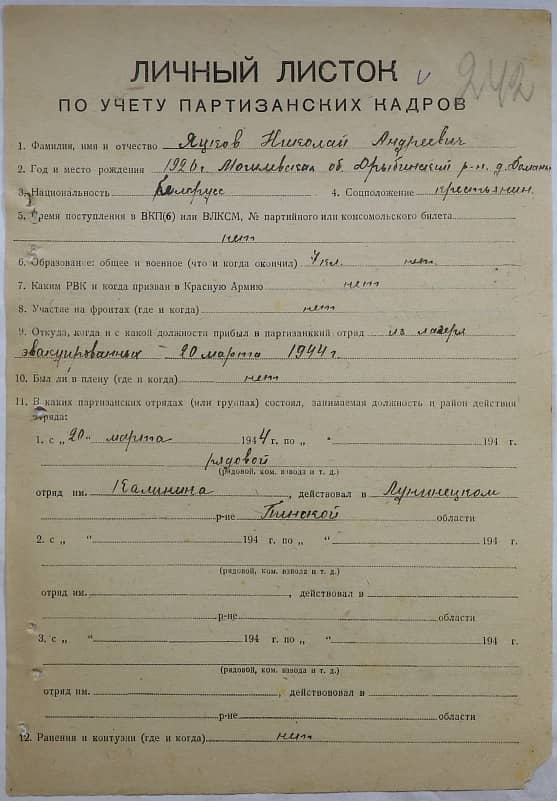 ЛИЧНЫЙ ЛИСТОК
242
ПО УЧЕТУ ПАРТИЗАНСКИХ КАДРОВ
1. Фамилия, имя и отчество Яцков Николай Андреевич
2. Год и место рождения 1926 г. Могилевская об. Дрыбинский р-н. д.
3. Национальность Белорусс 4. Соцположение крестьянин.
5. Время поступления в ВКП(б) или ВЛКСМ, № партийного или комсомольского билета
нет
6. Образование: общее и военное (что и когда окончил) 7 кл. нет.
7. Каким РВК и когда призван в Красную Армию нет
8. Участие на фронтах (где и когда) нет
9. Откуда, когда и с какой должности прибыл в партизанккий отряд из лагеря
эвакуированных – 20 марта 1944 г.
10. Был ли в плену (где и когда) нет
11. В каких партизанских отрядах (или группах) состоял, занимаемая должность и район действия
отряда:
1. с „20“ марта 1944 г. по „ “ 194 г.
рядовой
(рядовой, ком. взвода и т. д.)
отряд им. Калинина, действовал в Лунинецком
р-не Пинской области
2. с „ “ 194 г. по „ “ 194 г.
(рядовой, ком. взвода и т. д.)
отряд им. , действовал в
р-не области
3. с „ “ 194 г. по „ “ 194 г.
(рядовой, ком. взвода и т. д.)
отряд им. , действововал в
р-не области
12. Ранения и контузии (где и когда) нет